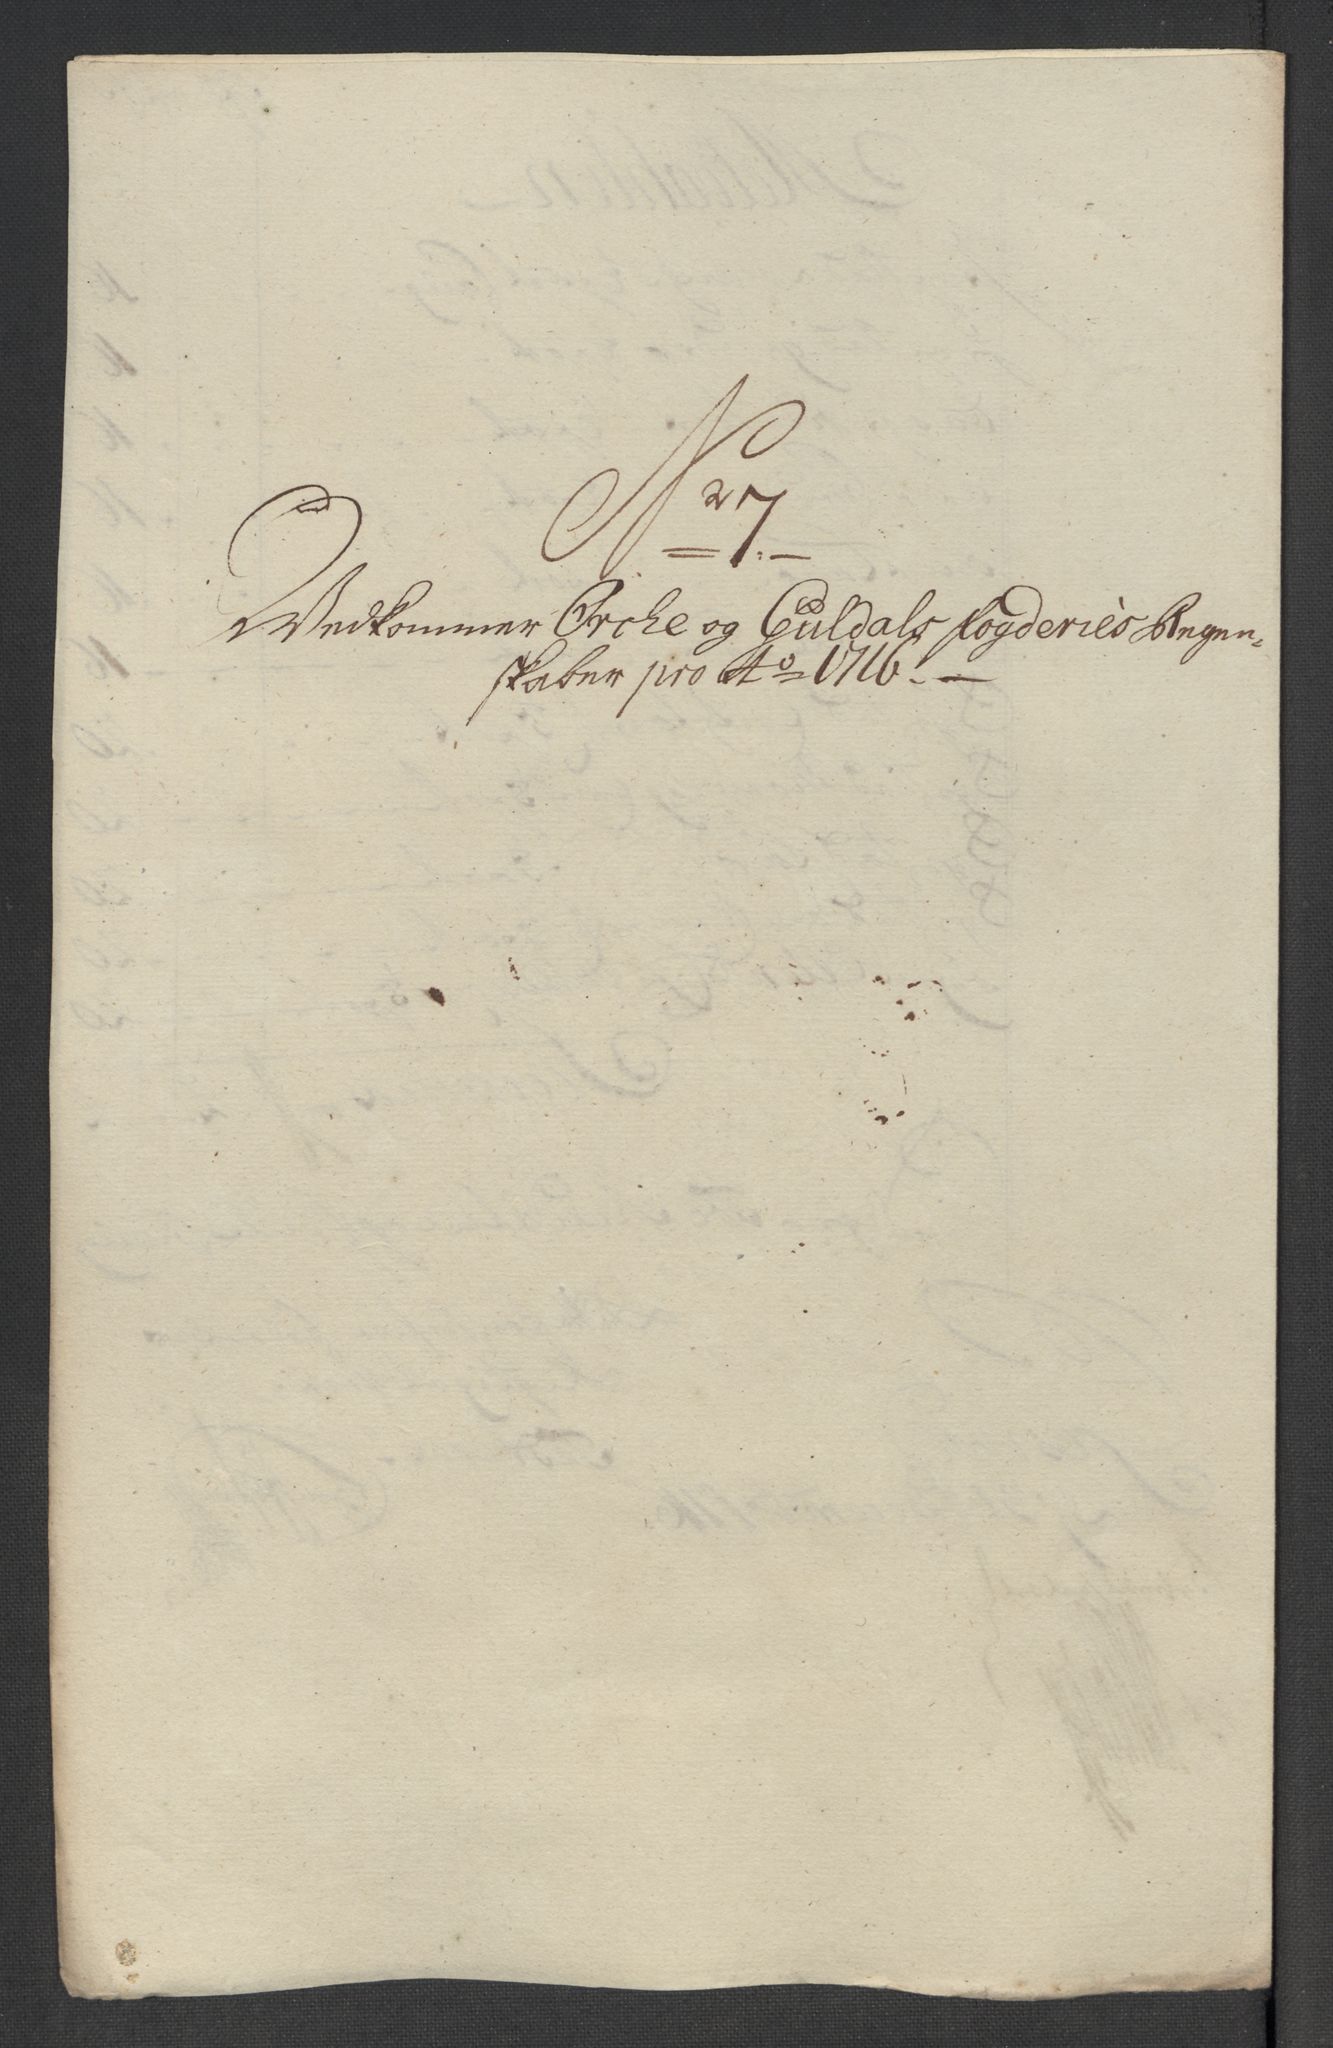 No 7.
Vedkommer Orche og Guldals fogderies Regen-
skaber pro Ao 1716.